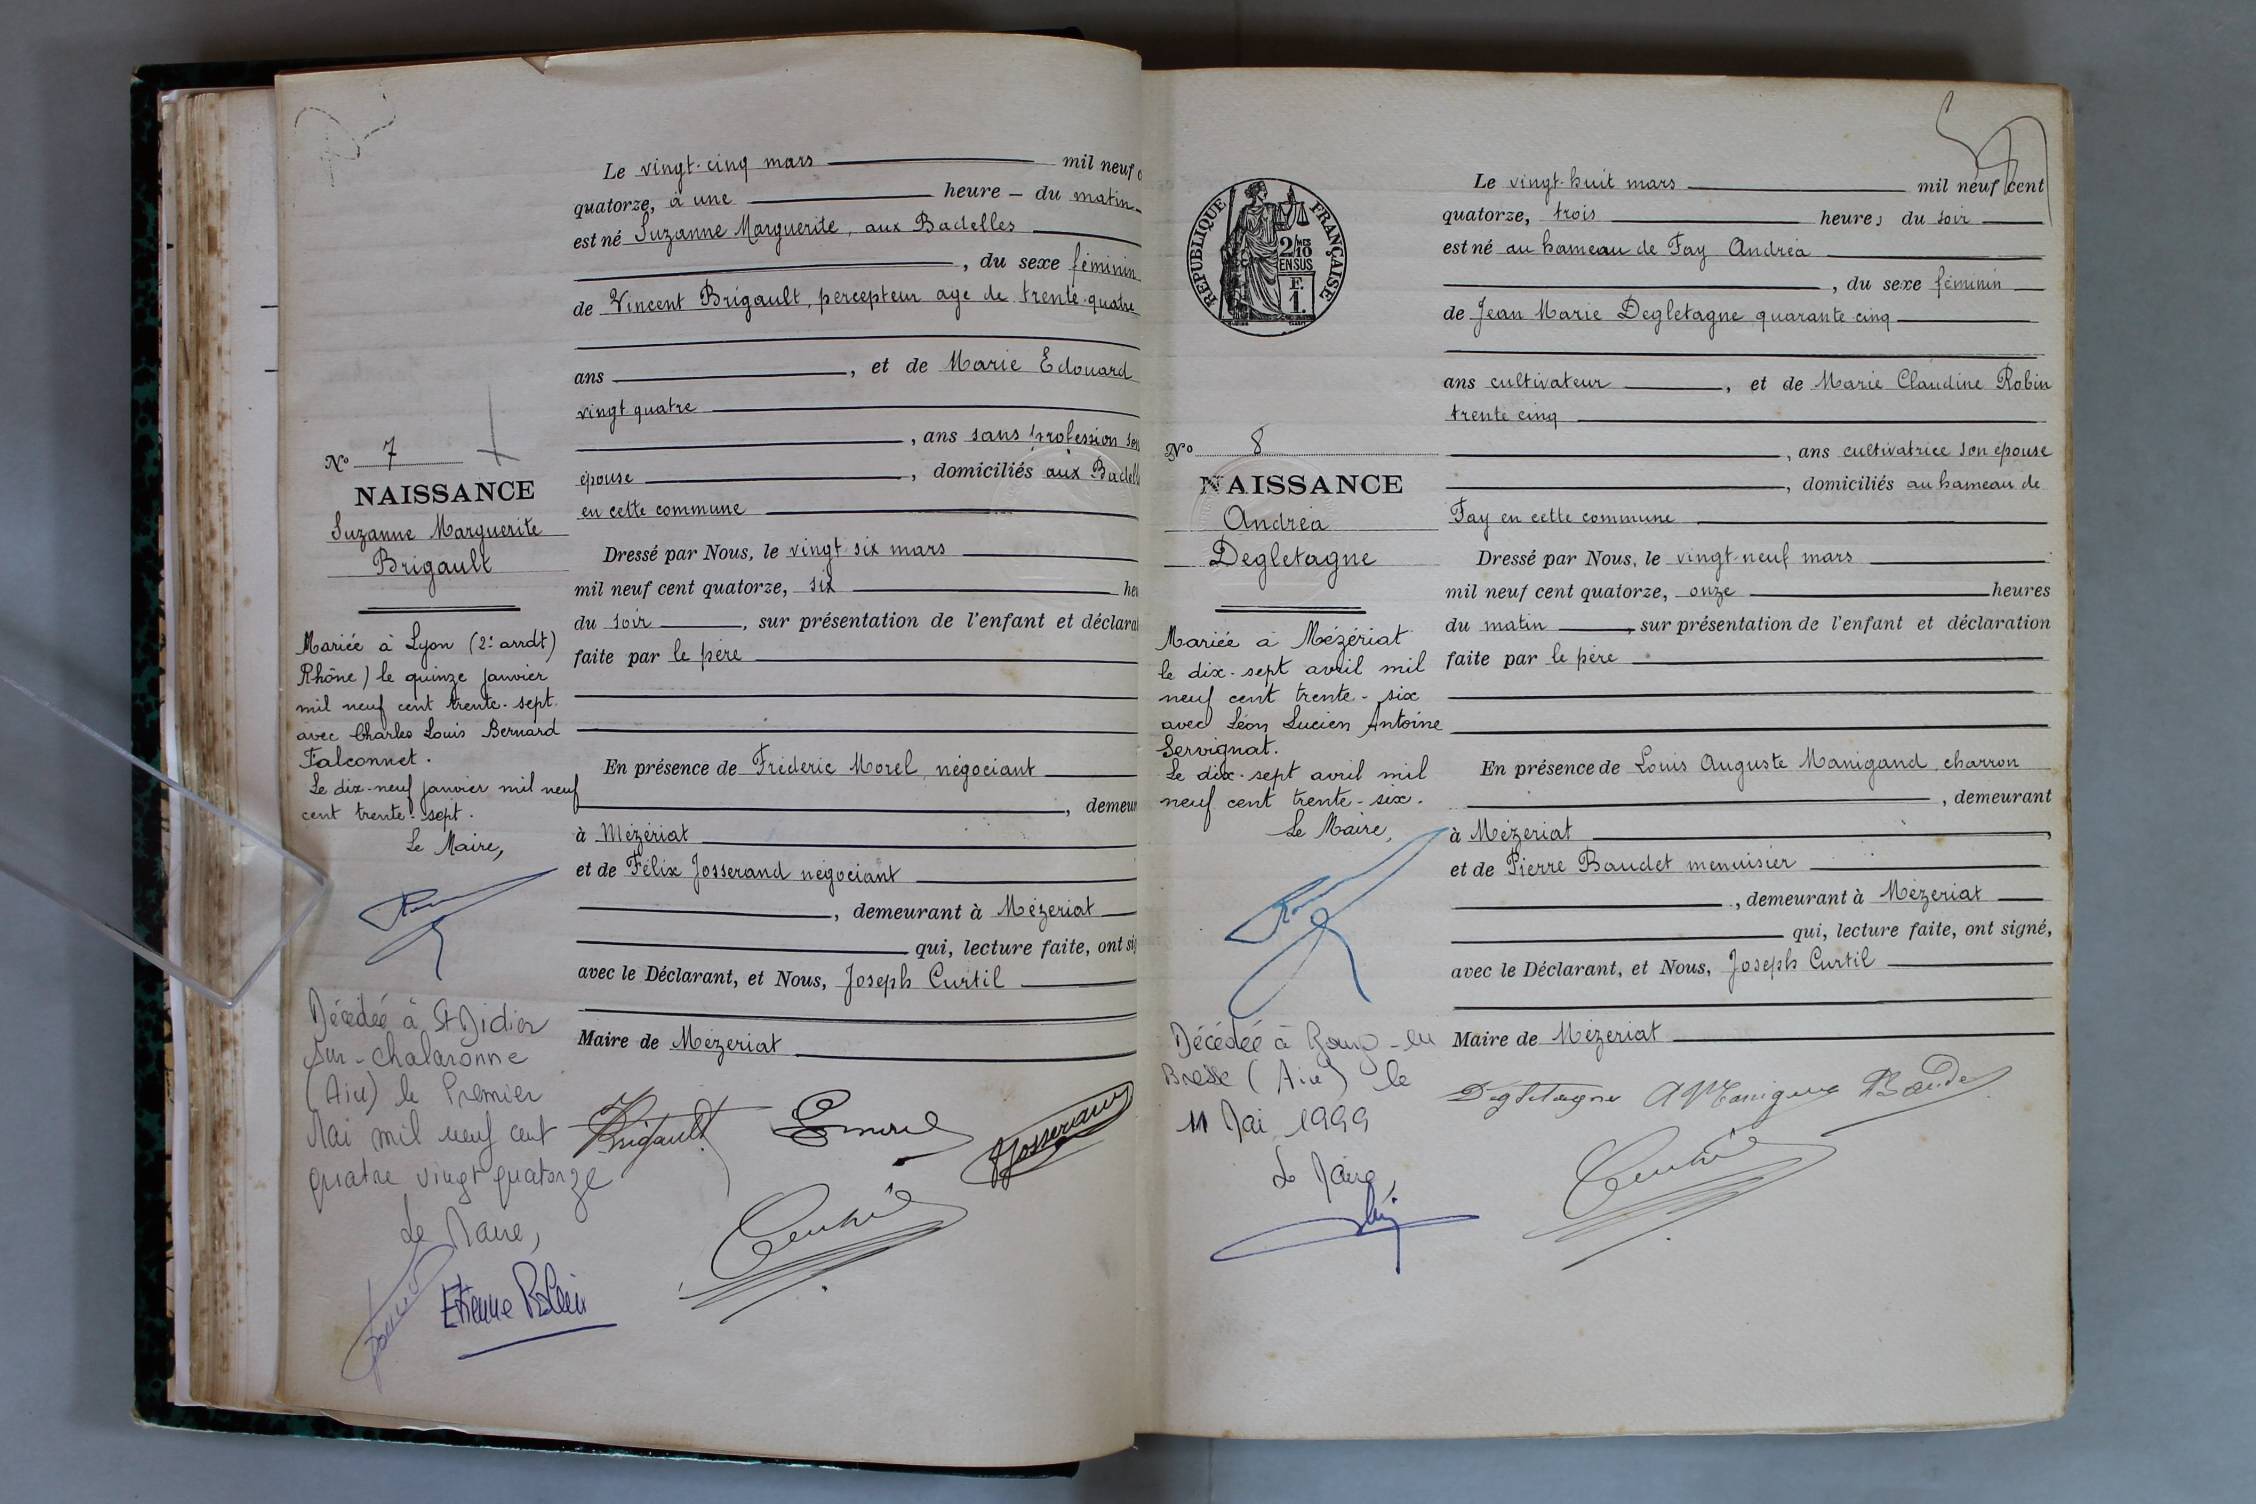 Le vingt-cinq mars mil neuf c
quatorze, à une heure - du matin
est né Suzanne Marguerite, aux Badelles
, du sexe féminin
de Vincent Brigault, percepteur agé de trente-quatre
ans , et de Marie Edouard
vingt quatre
, ans sans profession son
épouse , domiciliés aux Badell
en cette commune
Dressé par Nous, le vingt six mars
mil neuf cent quatorze, six heu
du soir , sur présentation de l'enfant et déclarat
faite par le père
En présence de Fréderic Morel négociant
, demeur
à Mézériat
et de Félix Josserand négociant
, demeurant à Mézeriat
qui, lecture faite, ont sig
avec le Déclarant, et Nous, Joseph Curtil
Maire de Mézeriat
Brigault
Josserand
N° 7
NAISSANCE
Suzanne Marguerite
Brigault
Mariée à Lyon (2e arrdt)
Rhône) le quinze janvier
mil neuf cent trente-sept
avec Charles Louis Bernard
Falconnet.
Le dix-neuf janvier mil neuf
cent trente-sept.
Le Maire,
Décédée à St Didier
sur-chalaronne
(Ain) le Premier
Mai mil neuf cent
quatre vingt quatorze
Le Maire,
Etienne
RÉPUBLIQUE FRANÇAISE
2/10MES
EN SUS
F.
1.
N° 8
NAISSANCE
Andréa
Degletagne
Mariée à Mézériat
le dix-sept avril mil
neuf cent trente-six
avec Léon Lucien Antoine
Servignat.
Le dix-sept avril mil
neuf cent trente-six.
Le Maire,
Décédée à Bourg-en
Bresse (Ain) le
11 Mai 1999
Le Maire,
Le vingt-huit mars mil neuf cent
quatorze, trois heures du soir
est né au hameau de Fay Andréa
, du sexe féminin
de Jean Marie Degletagne quarante cinq
ans cultivateur , et de Marie Claudine Robin
trente cinq
, ans cultivatrice son épouse
, domiciliés au hameau de
Fay en cette commune
Dressé par Nous, le vingt-neuf mars
mil neuf cent quatorze, onze heures
du matin , sur présentation de l'enfant et déclaration
faite par le père
En présence de Louis Auguste Manigand charron
, demeurant
à Mézeriat
et de Pierre Baudet menuisier
, demeurant à Mézeriat
qui, lecture faite, ont signé,
avec le Déclarant, et Nous, Joseph Curtil
Maire de Mézeriat
Degletagne